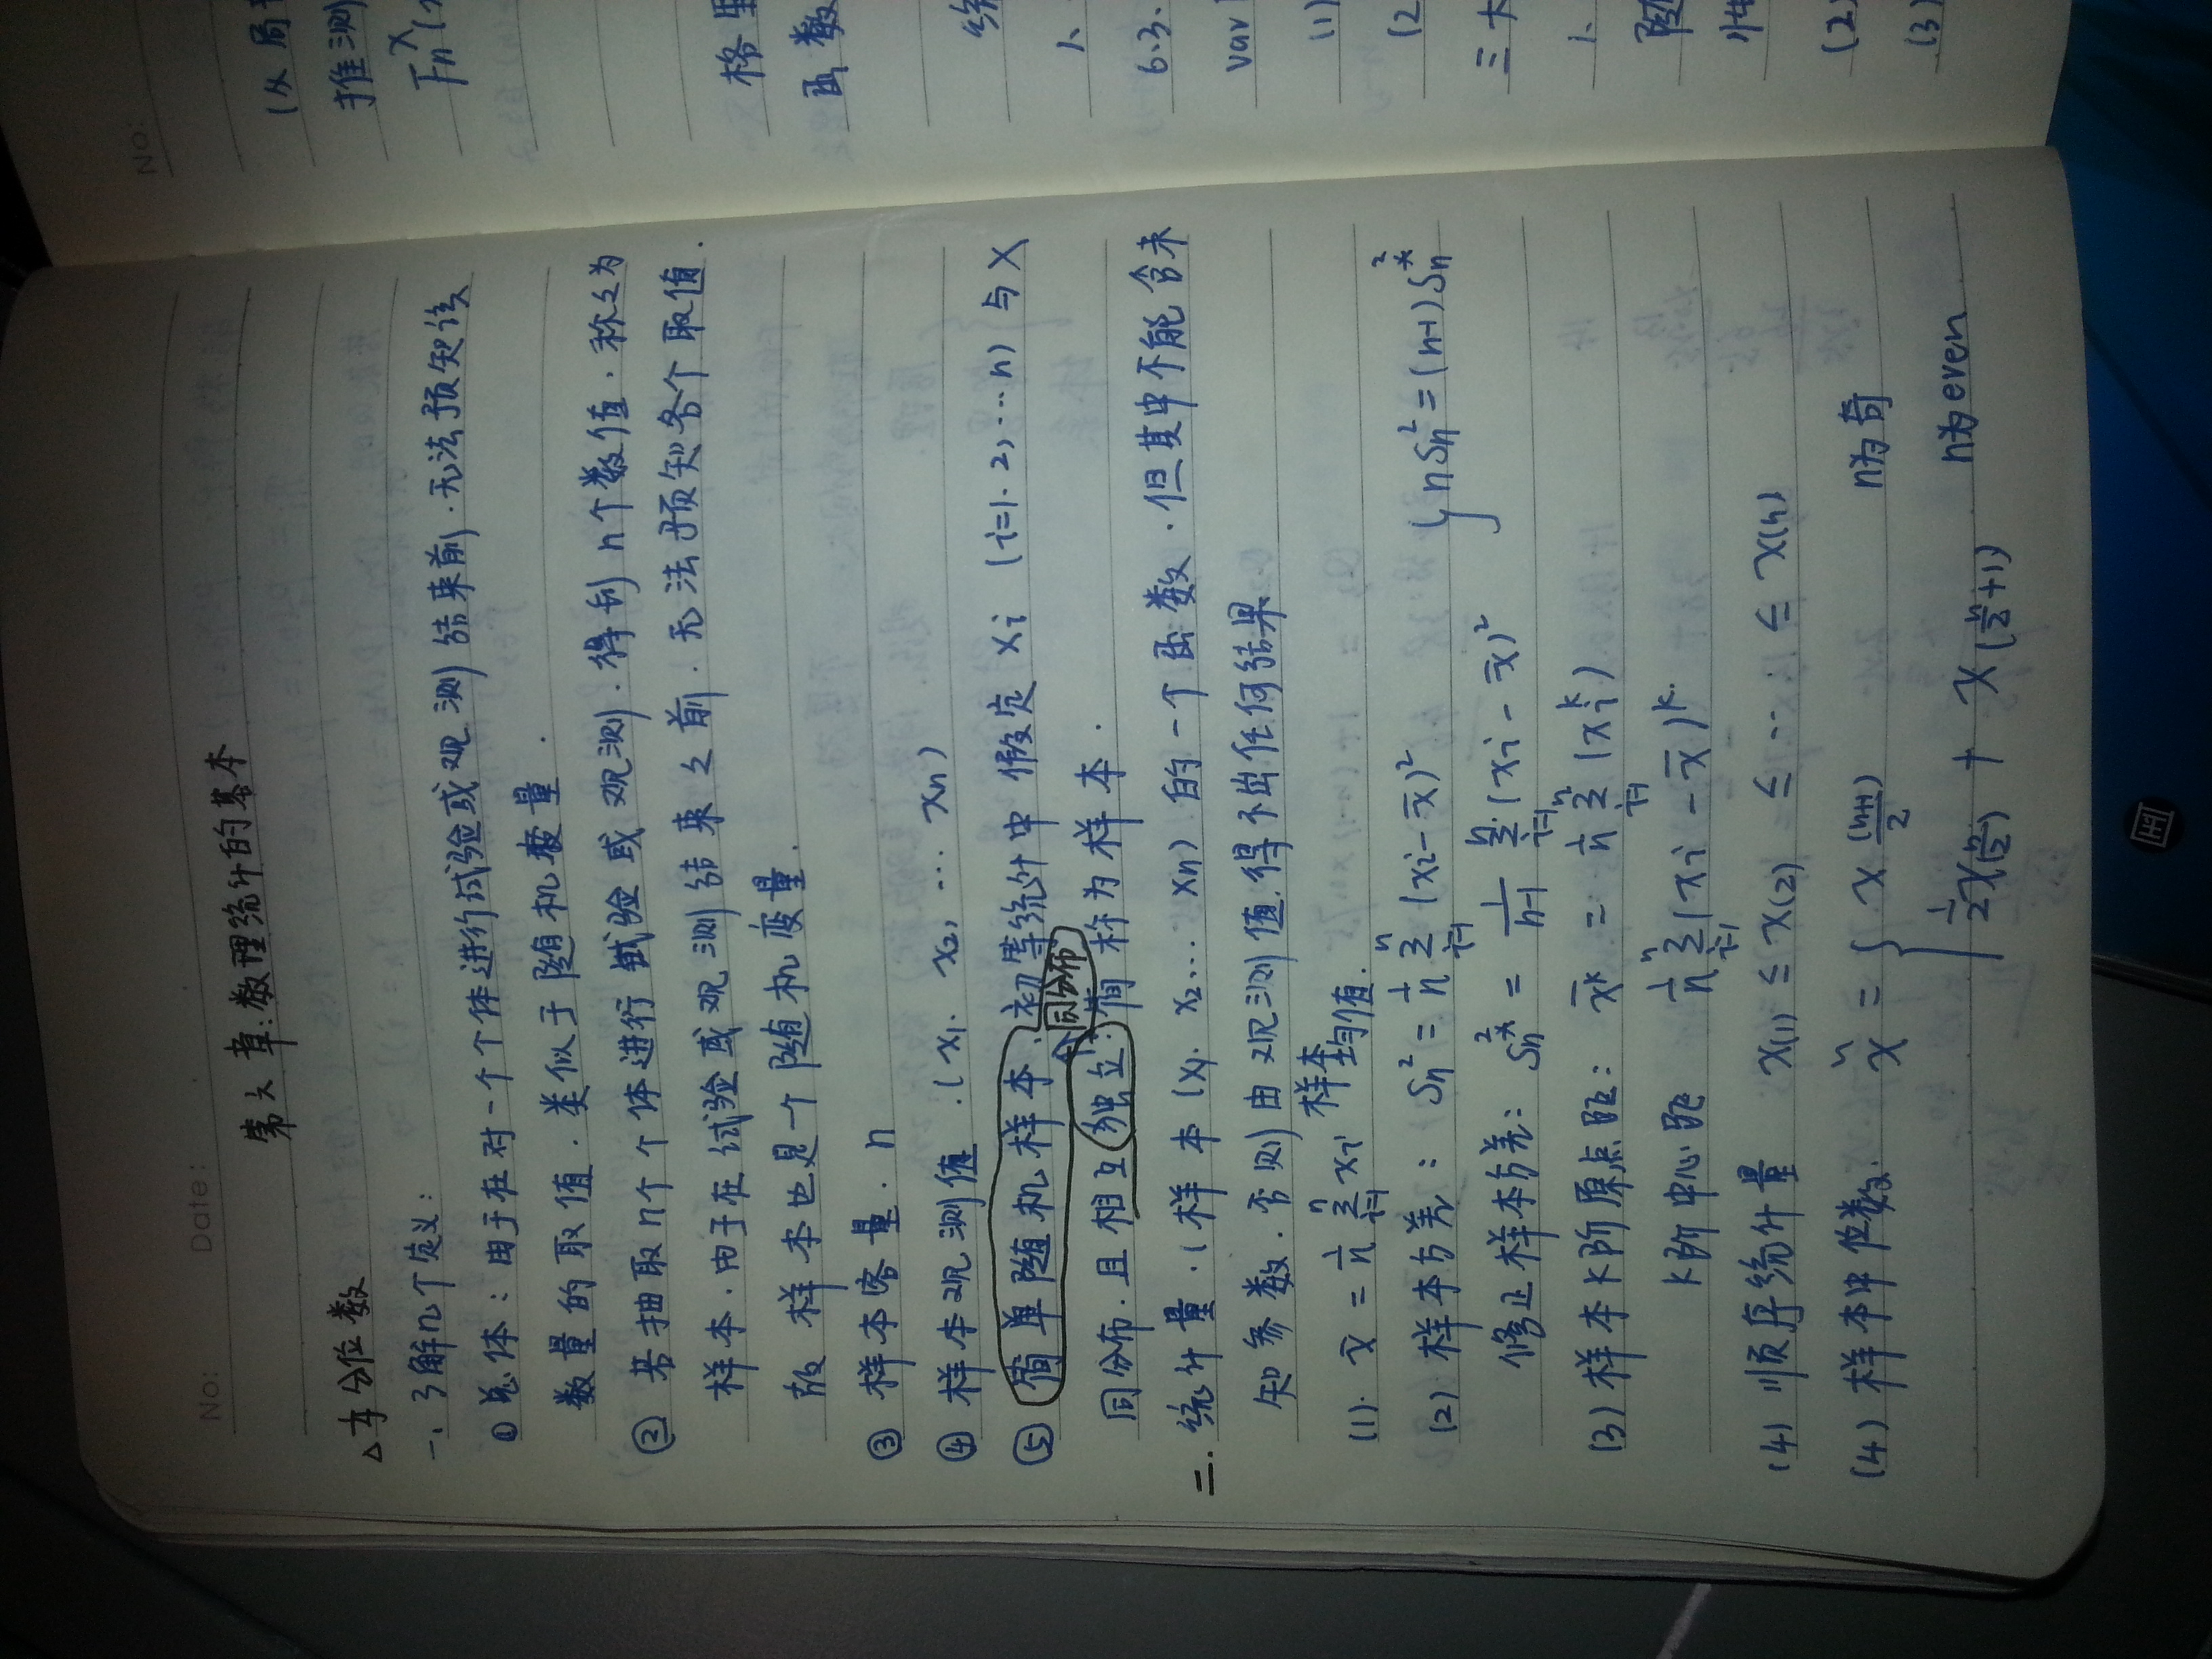 No: Date:
第六章:数理统计的基本
△ 分位数
一、了解几个定义:
① 总体:由于在对一个个体进行试验或观测结束前.无法预知该
数量的取值.类似于随机变量.
② 若抽取n个个体进行试验或观测.得到n个数值.称之为
样本.由于在试验或观测结束之前.无法预知各个取值.
故样本也是一个随机变量.
③ 样本容量. n
④ 样本观测值.(x1. x2, … xn)
⑤ 简单随机样本.初等统计中假定 xi (i=1. 2, … n) 与 X
↑同分布
同分布.且相互独立.简称为样本.
二.统计量.(样本(x1. x2… xn)的一个函数.但其中不能含未
知参数.否则由观测值.得不出任何结果
(1). x̄ = 1/n Σ_{i=1}^{n} xi 样本均值.
(2) 样本方差: Sn² = 1/n Σ_{i=1}^{n} (xi - x̄)² } nSn² = (n-1)Sn*²
修正样本方差: Sn*² = 1/(n-1) Σ_{i=1}^{n} (xi - x̄)²
(3) 样本K阶原点距: x̄ᵏ = 1/n Σ_{i=1}^{n} (xiᵏ)
K阶中心距 1/n Σ_{i=1}^{n} (xi - x̄)ᵏ.
(4) 顺序统计量 x(1) ≤ x(2) ≤ … ≤ x(n)
(4) 样本中位数. x̃ = { x (n+1)/2 n为奇
1/2 x(n/2) + x(n/2+1) n为even
No:
(从局
推测
Fn^x(
格里
函数
1、
6.3.
var
(1)
(2
三大
1.
随
性
(2)
(3)
国